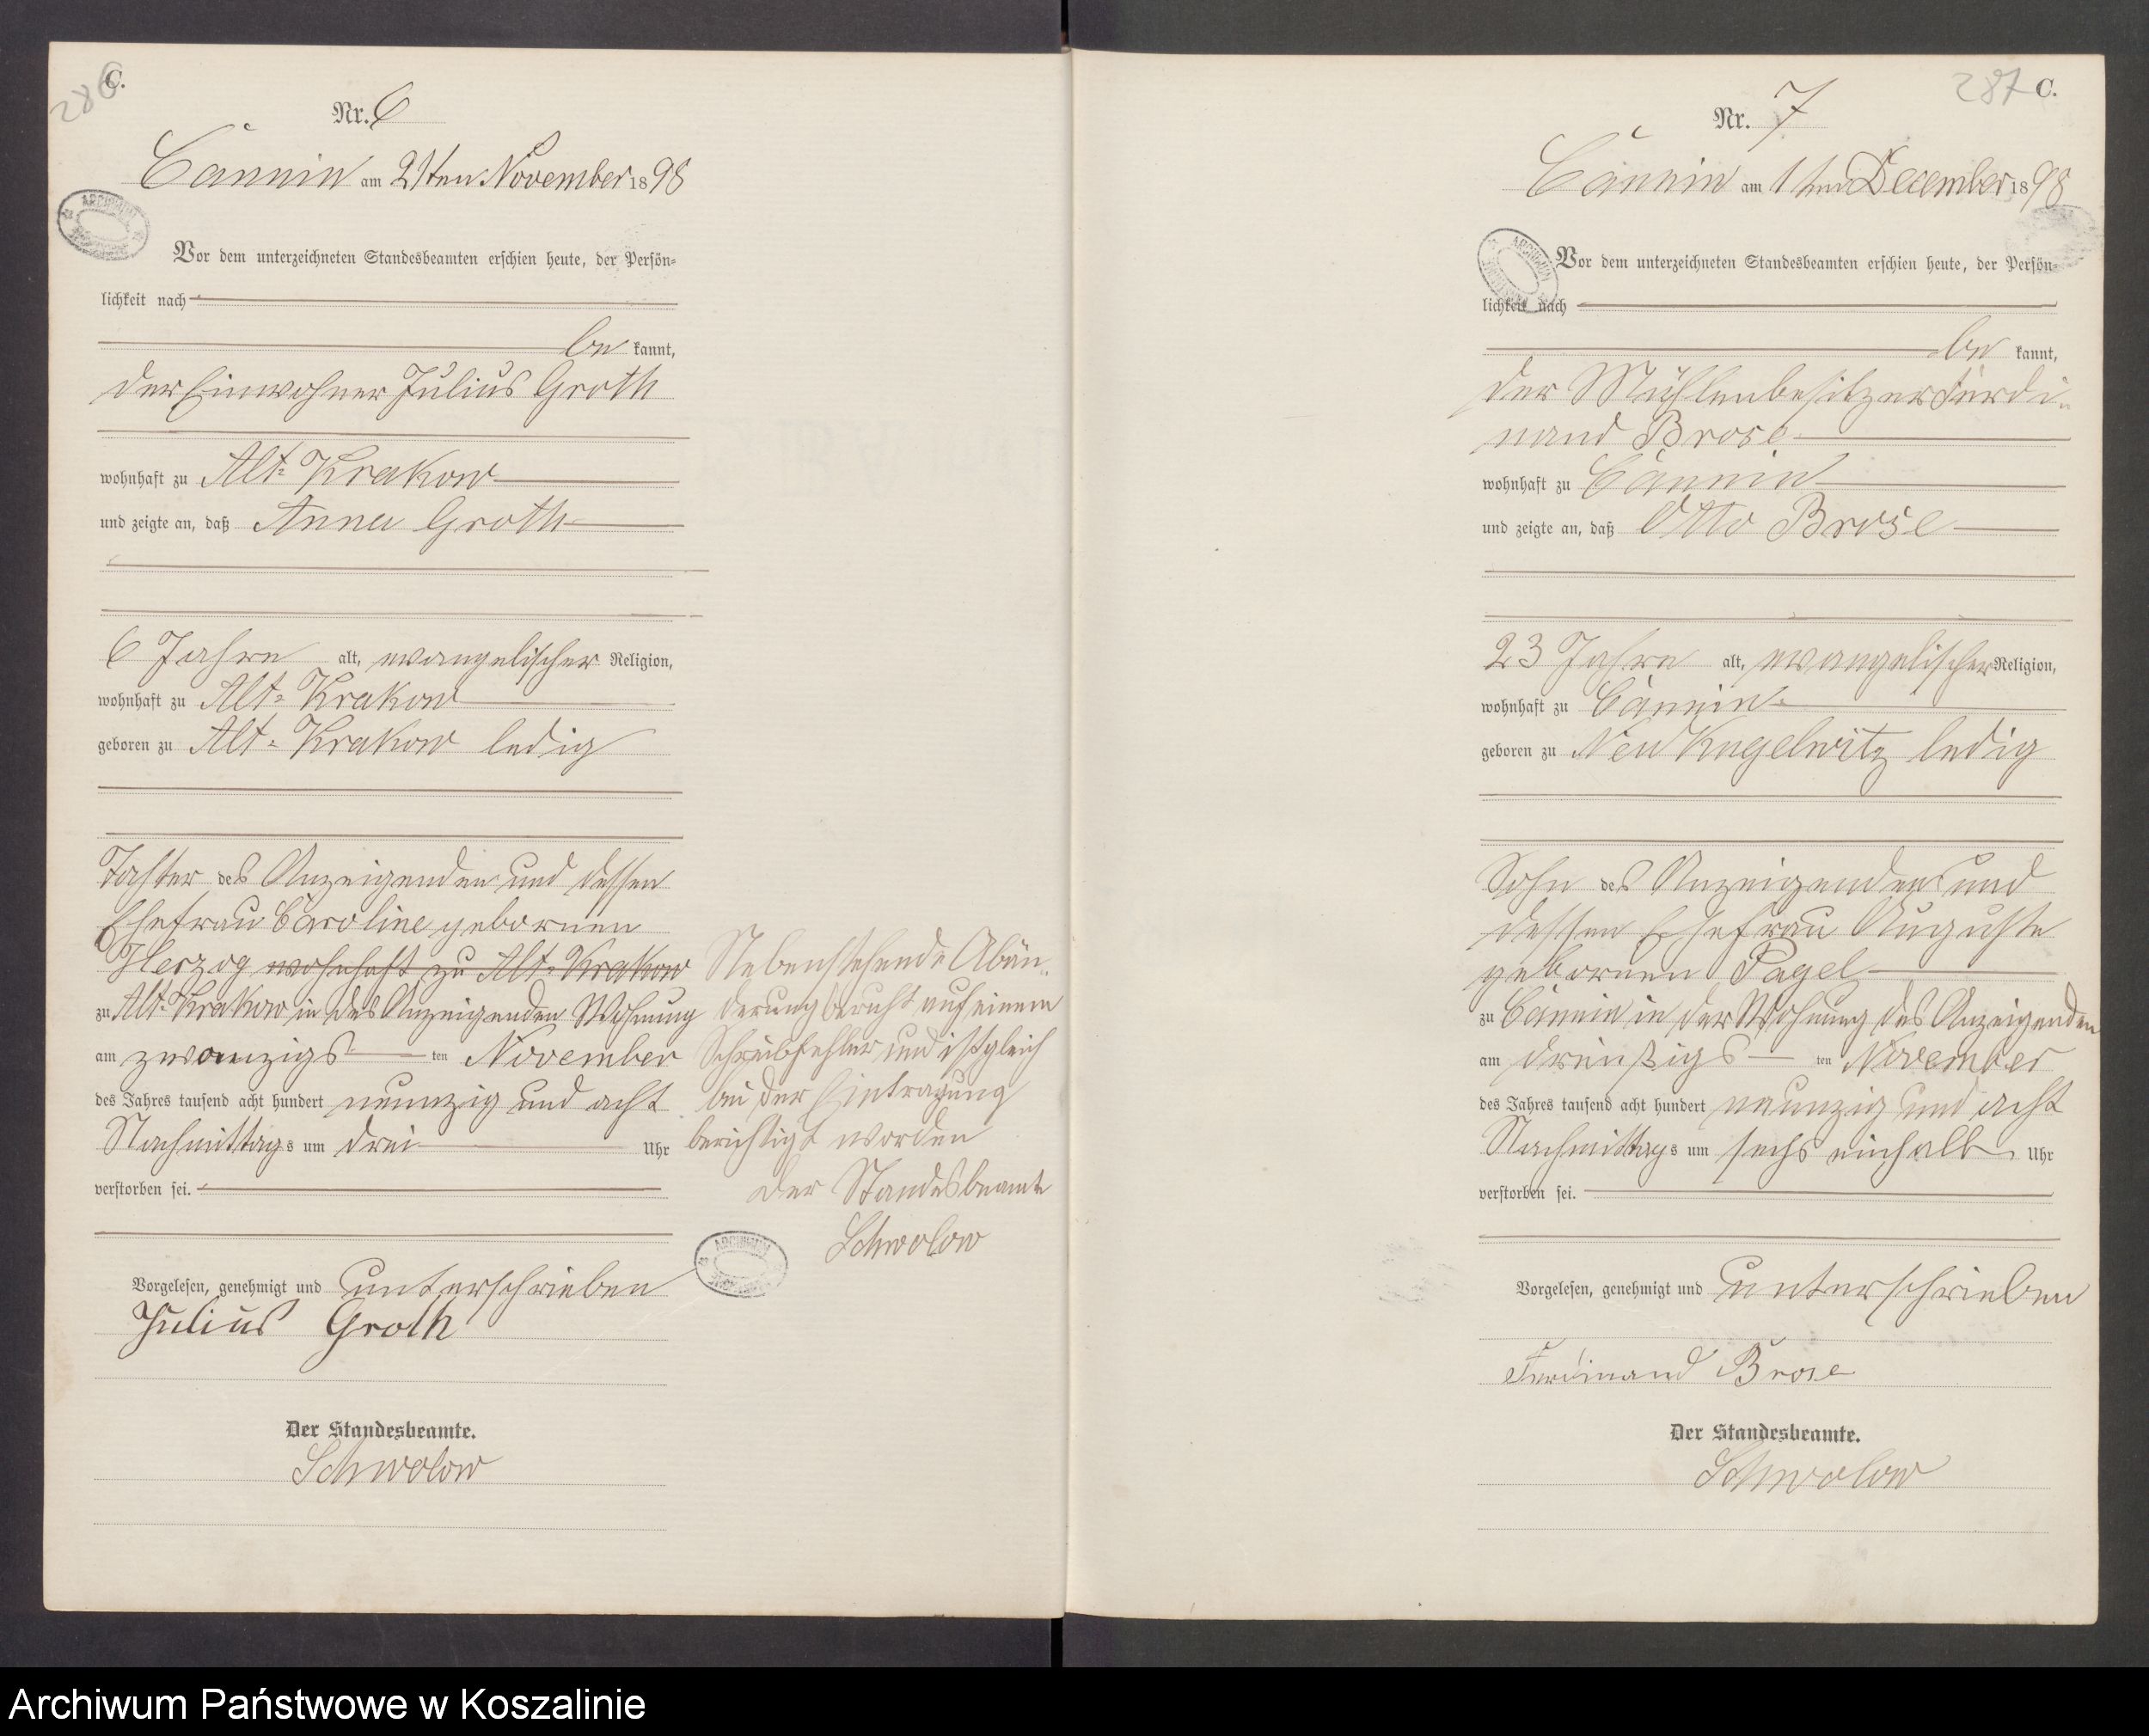 286
C.
Nr. 6
Cannin am 21ten November 1898
Vor dem unterzeichneten Standesbeamten erschien heute, der Persön-
lichkeit nach
be kannt,
der Einwohner Julius Groth
wohnhaft zu Alt-Krakow
und zeigte an, daß Anna Groth
6 Jahre alt, evangelischer Religion,
wohnhaft zu Alt-Krakow
geboren zu Alt-Krakow ledig
Tochter des Anzeigenden und dessen
Ehefrau Caroline gebornen
Herzog wohnhaft zu Alt-Krakow
zu Alt-Krakow in des Anzeigenden Wohnung
am zwanzigs ten November
des Jahres tausend acht hundert neunzig und acht
Nachmittags um drei Uhr
verstorben sei.
Vorgelesen, genehmigt und unterschrieben
Julius Groth
Der Standesbeamte.
Schwolow
Nebenstehende Abän-
derung beruht auf einem
Schreibfehler und ist gleich
bei der Eintragung
berichtigt worden
Der Standesbeamte
Schwolow
ARCHIWUM
287
C.
Nr. 7
Cannin am 1ten December 1898
Vor dem unterzeichneten Standesbeamten erschien heute, der Persön-
lichkeit nach
be kannt,
der Mühlenbesitzer Ferdi-
nand Brose
wohnhaft zu Cannin
und zeigte an, daß Otto Brose
23 Jahre alt, evangelischer Religion,
wohnhaft zu Cannin
geboren zu Neu Kugelwitz ledig
Sohn des Anzeigenden und
dessen Ehefrau Auguste
gebornen Pagel
zu Cannin in der Wohnung des Anzeigenden
am dreißigs ten November
des Jahres tausend acht hundert neunzig und acht
Nachmittags um sechs einhalb Uhr
verstorben sei.
Vorgelesen, genehmigt und unterschrieben
Ferdinand Brose
Der Standesbeamte.
Schwolow
Archiwum Państwowe w Koszalinie